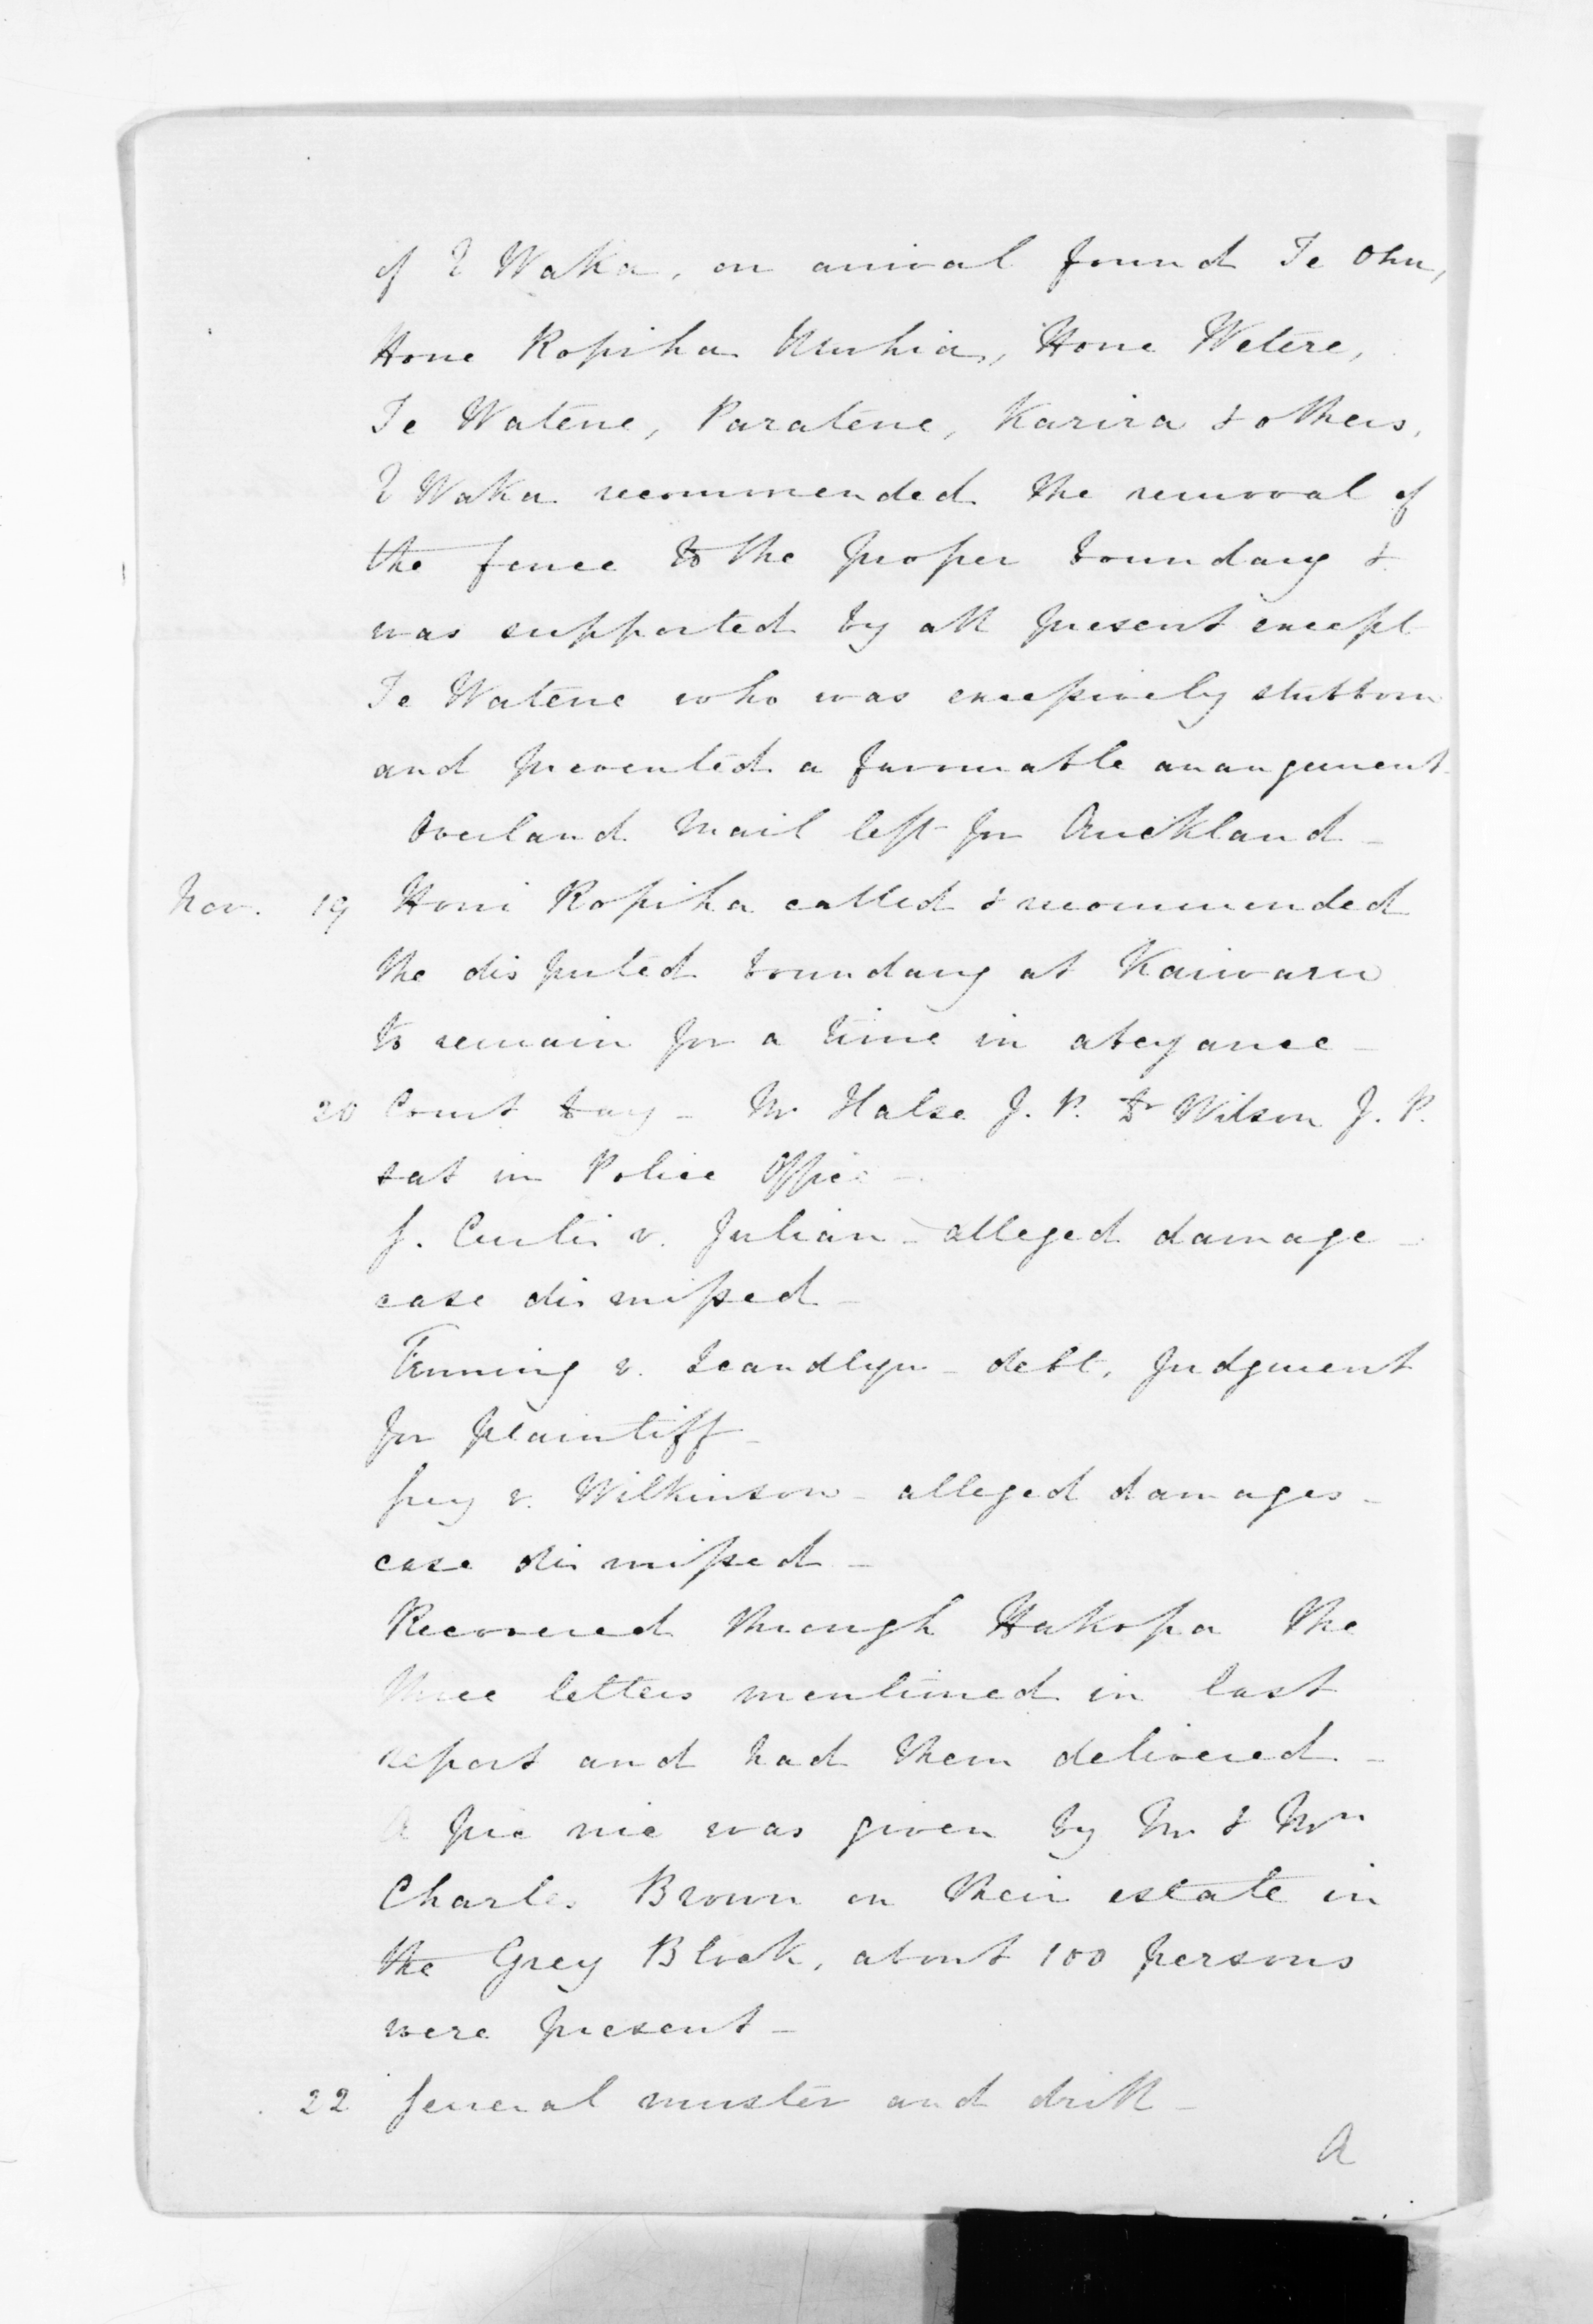 of E Waka, on arrival found Te Ohu,
Hone Ropiha Huhia, Hone Wetere,
Te Watene, Paratene, Karira & others.
E Waka recommended the removal of
the fence to the proper boundary &
was supported by all present except
Te Watene who was excessively stubborn
and prevented a favourable arrangement
Overland Mail left for Auckland -
Nov. 19 Honi Ropiha called & recommended
the disputed boundary at
to remain for a time in abeyance -
20 Court day - Mr Halse J. P. Dr Wilson J. P.
sat in Police Office -
J. Curtis v. Julian - alleged damage -
case dismissed -
v. Scandlyn - debt, Judgment
for plaintiff -
v. Wilkinson - alleged damages -
case dismissed -
Recovered through Hakopa the
three letters mentioned in last
report and had them delivered -
A pic nic was given by Mr & Mrs
Charles Brown on their estate in
the Grey Block, about 100 persons
were present -
22 General muster and drill -
A